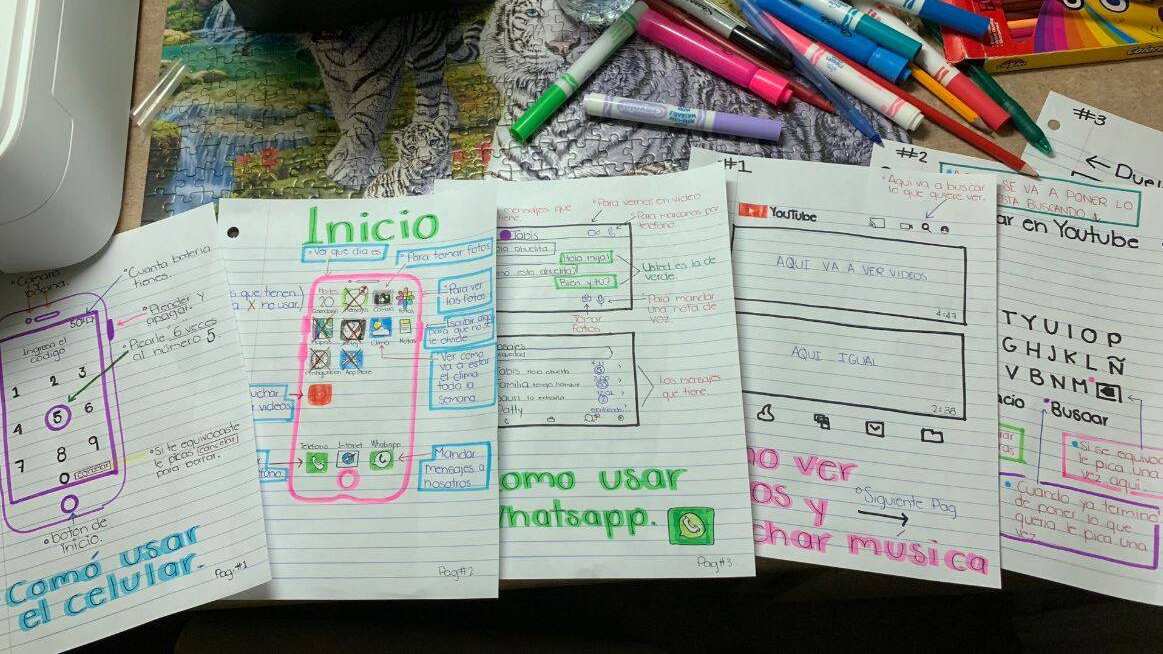 Cámara
y
pagina.
•Cuanta bateria
tienes.
50%
•Prender Y
apagar.
•Picarle 6 veces
al número 5
Ingresa el
código
1 2 3
4 5 6
7 8 9
0 Cancelar
•Si te equivocaste
le picas cancelar
para borrar.
•boton de
Inicio.
Comó usar
el celular.
Pag#1
Inicio
•Ve que dia es
•Para tomar fotos
s que tienen
a X no usar.
20
Fotos
Clima
Notas
App Store
Para ver
las fotos
Escribir algo
para que no se
le olvide
•Ver como
va a estar
el clima
toda la
semana
uchar
videos
Telefono Internet Whatsapp
Mandar
mensajes a
nosotros
Pag#2
mensajes que
tiene
•Para vernos en video
•Para marcarnos por
telefono
Tabis
Hola mija!
Bien y tu?
Usted es la de
verde.
•Para mandar
una nota de
voz.
Tomar
fotos
sajes
Los mensajes
que tiene.
omo usar
hatsapp.
Pag#3
#1
YouTube
•Aqui va a buscar
lo que quiere ver.
AQUI VA A VER VIDEOS
4:47
AQUI IGUAL
2:36
mo ver
os y
char musica
•Siguiente Pag
#2
SE VA A PONER LO
STA BUSCANDO
ar en YouTube
T Y U I O P
G H J K L Ñ
V B N M
acio
•Buscar
•Si se
le pica una
vez aqui.
•Cuando ya termino
de poner lo que
queria le pica una
vez
#3
Duel